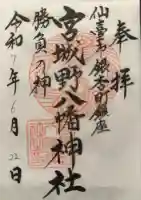 奉拝
仙台市銀杏町鎮座
宮城野八幡神社
勝負の神
令和7年6月22日